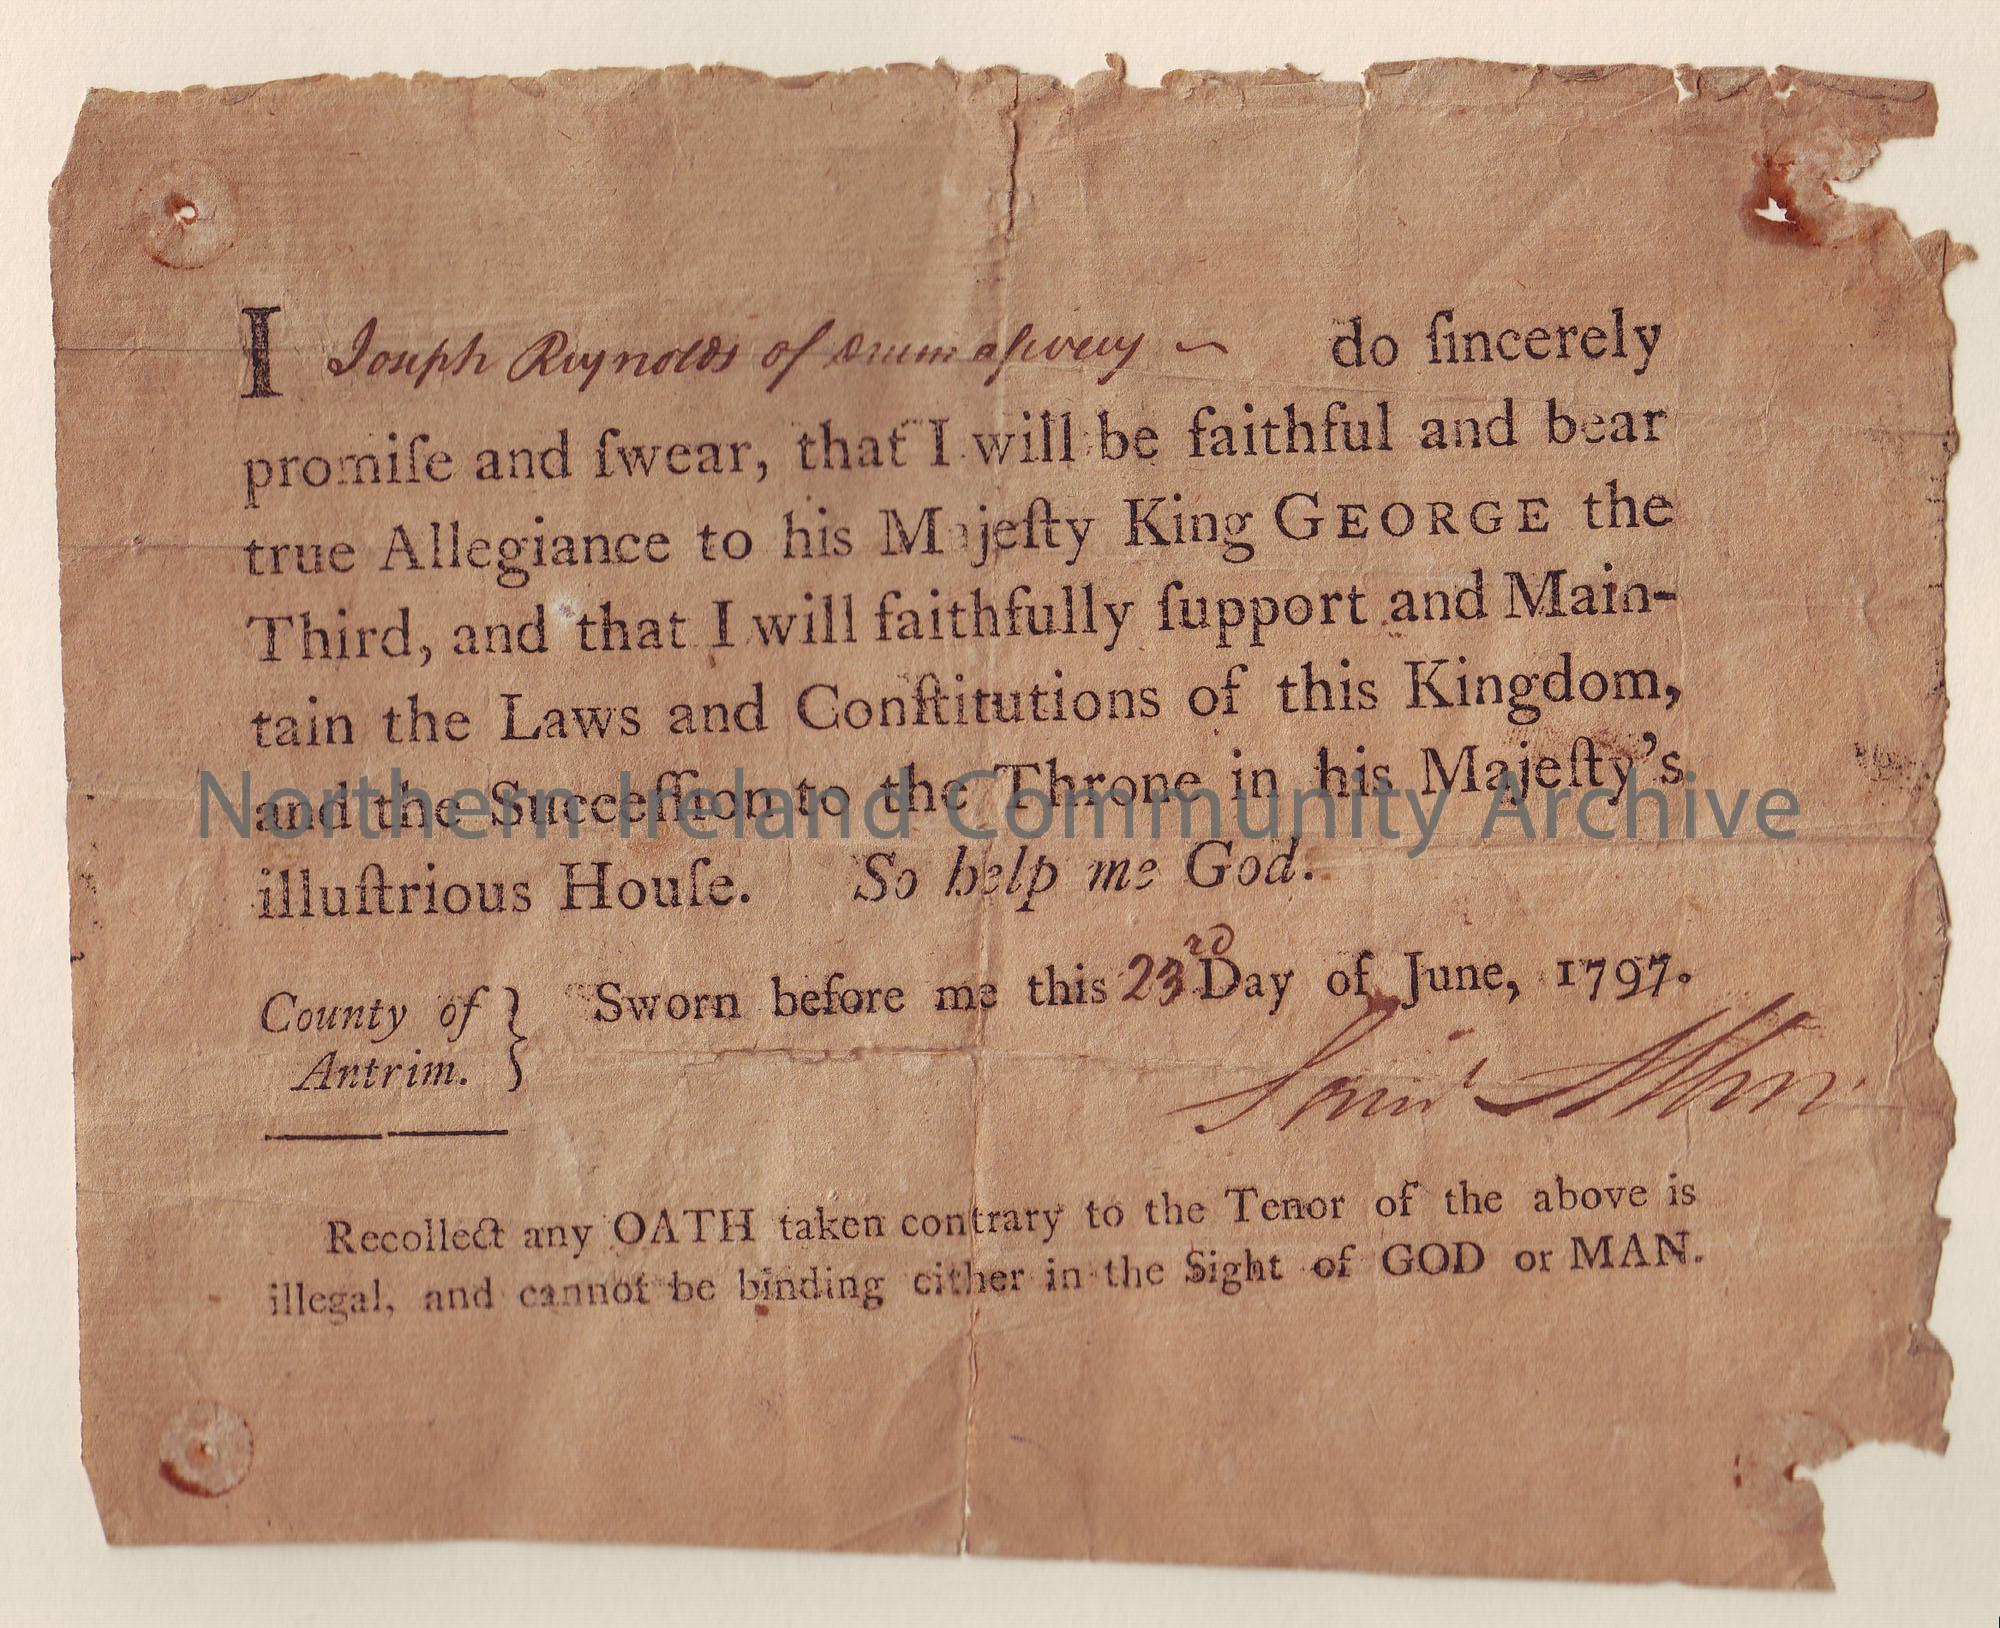 I Joseph Reynolds of do ſincerely
promiſe and ſwear, that I will be faithful and bear
true Allegiance to his Majeſty King GEORGE the
Third, and that I will faithfully ſupport and Main-
tain the Laws and Conſtitutions of this Kingdom,
and the Succeſſion to the Throne in his Majeſty's
illuſtrious Houſe. So help me God.
County of } Sworn before me this 23rd Day of June, 1797.
Antrim.
Recollect any OATH taken contrary to the Tenor of the above is
illegal, and cannot be binding either in the Sight of GOD or MAN.
Northern Ireland Community Archive